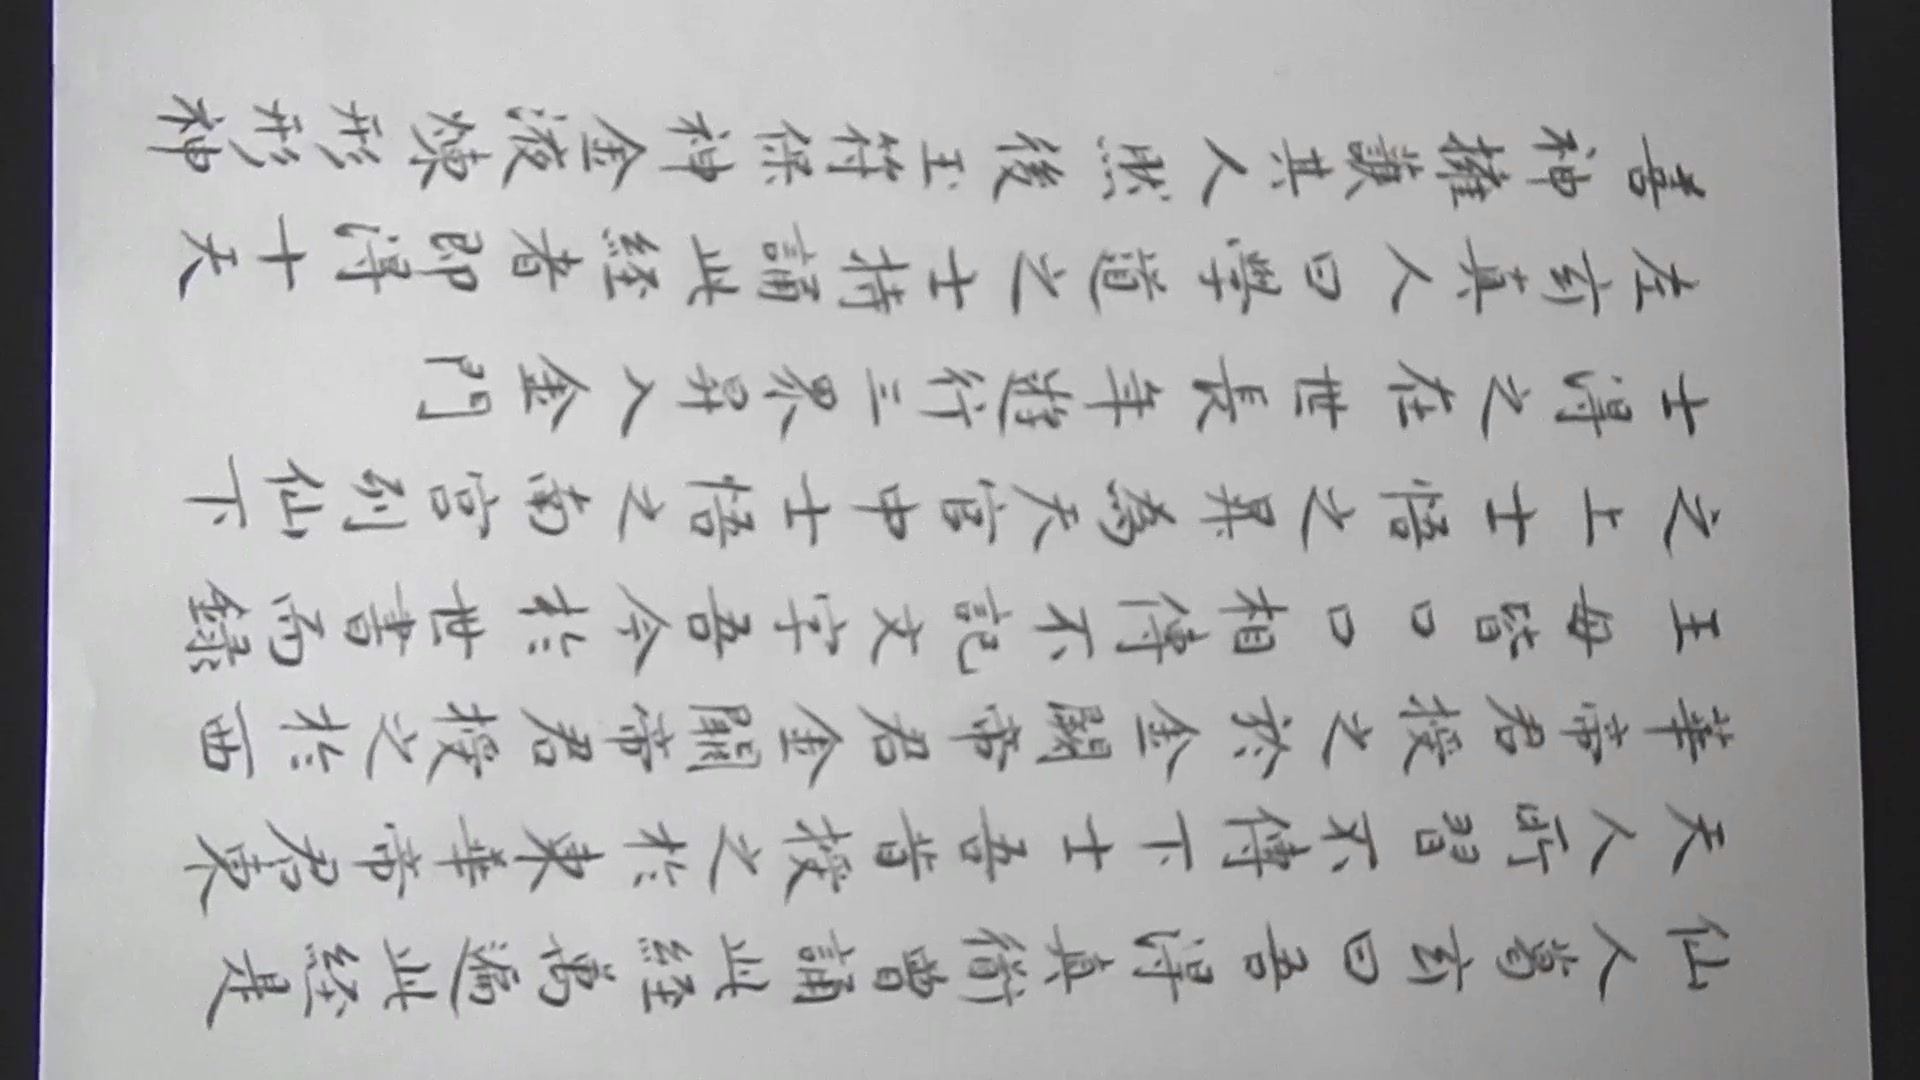 仙人葛玄曰吾得真衜曽誦此經萬遍此經是
天人所習不傳下士吾昔授之於東華帝君東
華帝君授之於金闕帝君金闕帝君授之於西
王母皆口口相傳不記文字吾今於世書而錄
之上士悟之昇為天官中士悟之南宮列仙下
士得之在世長年遊行三界昇入金門
左玄真人曰學道之士持誦此經者即得十天
善神擁護其人然後玉符保神金液煉形形神